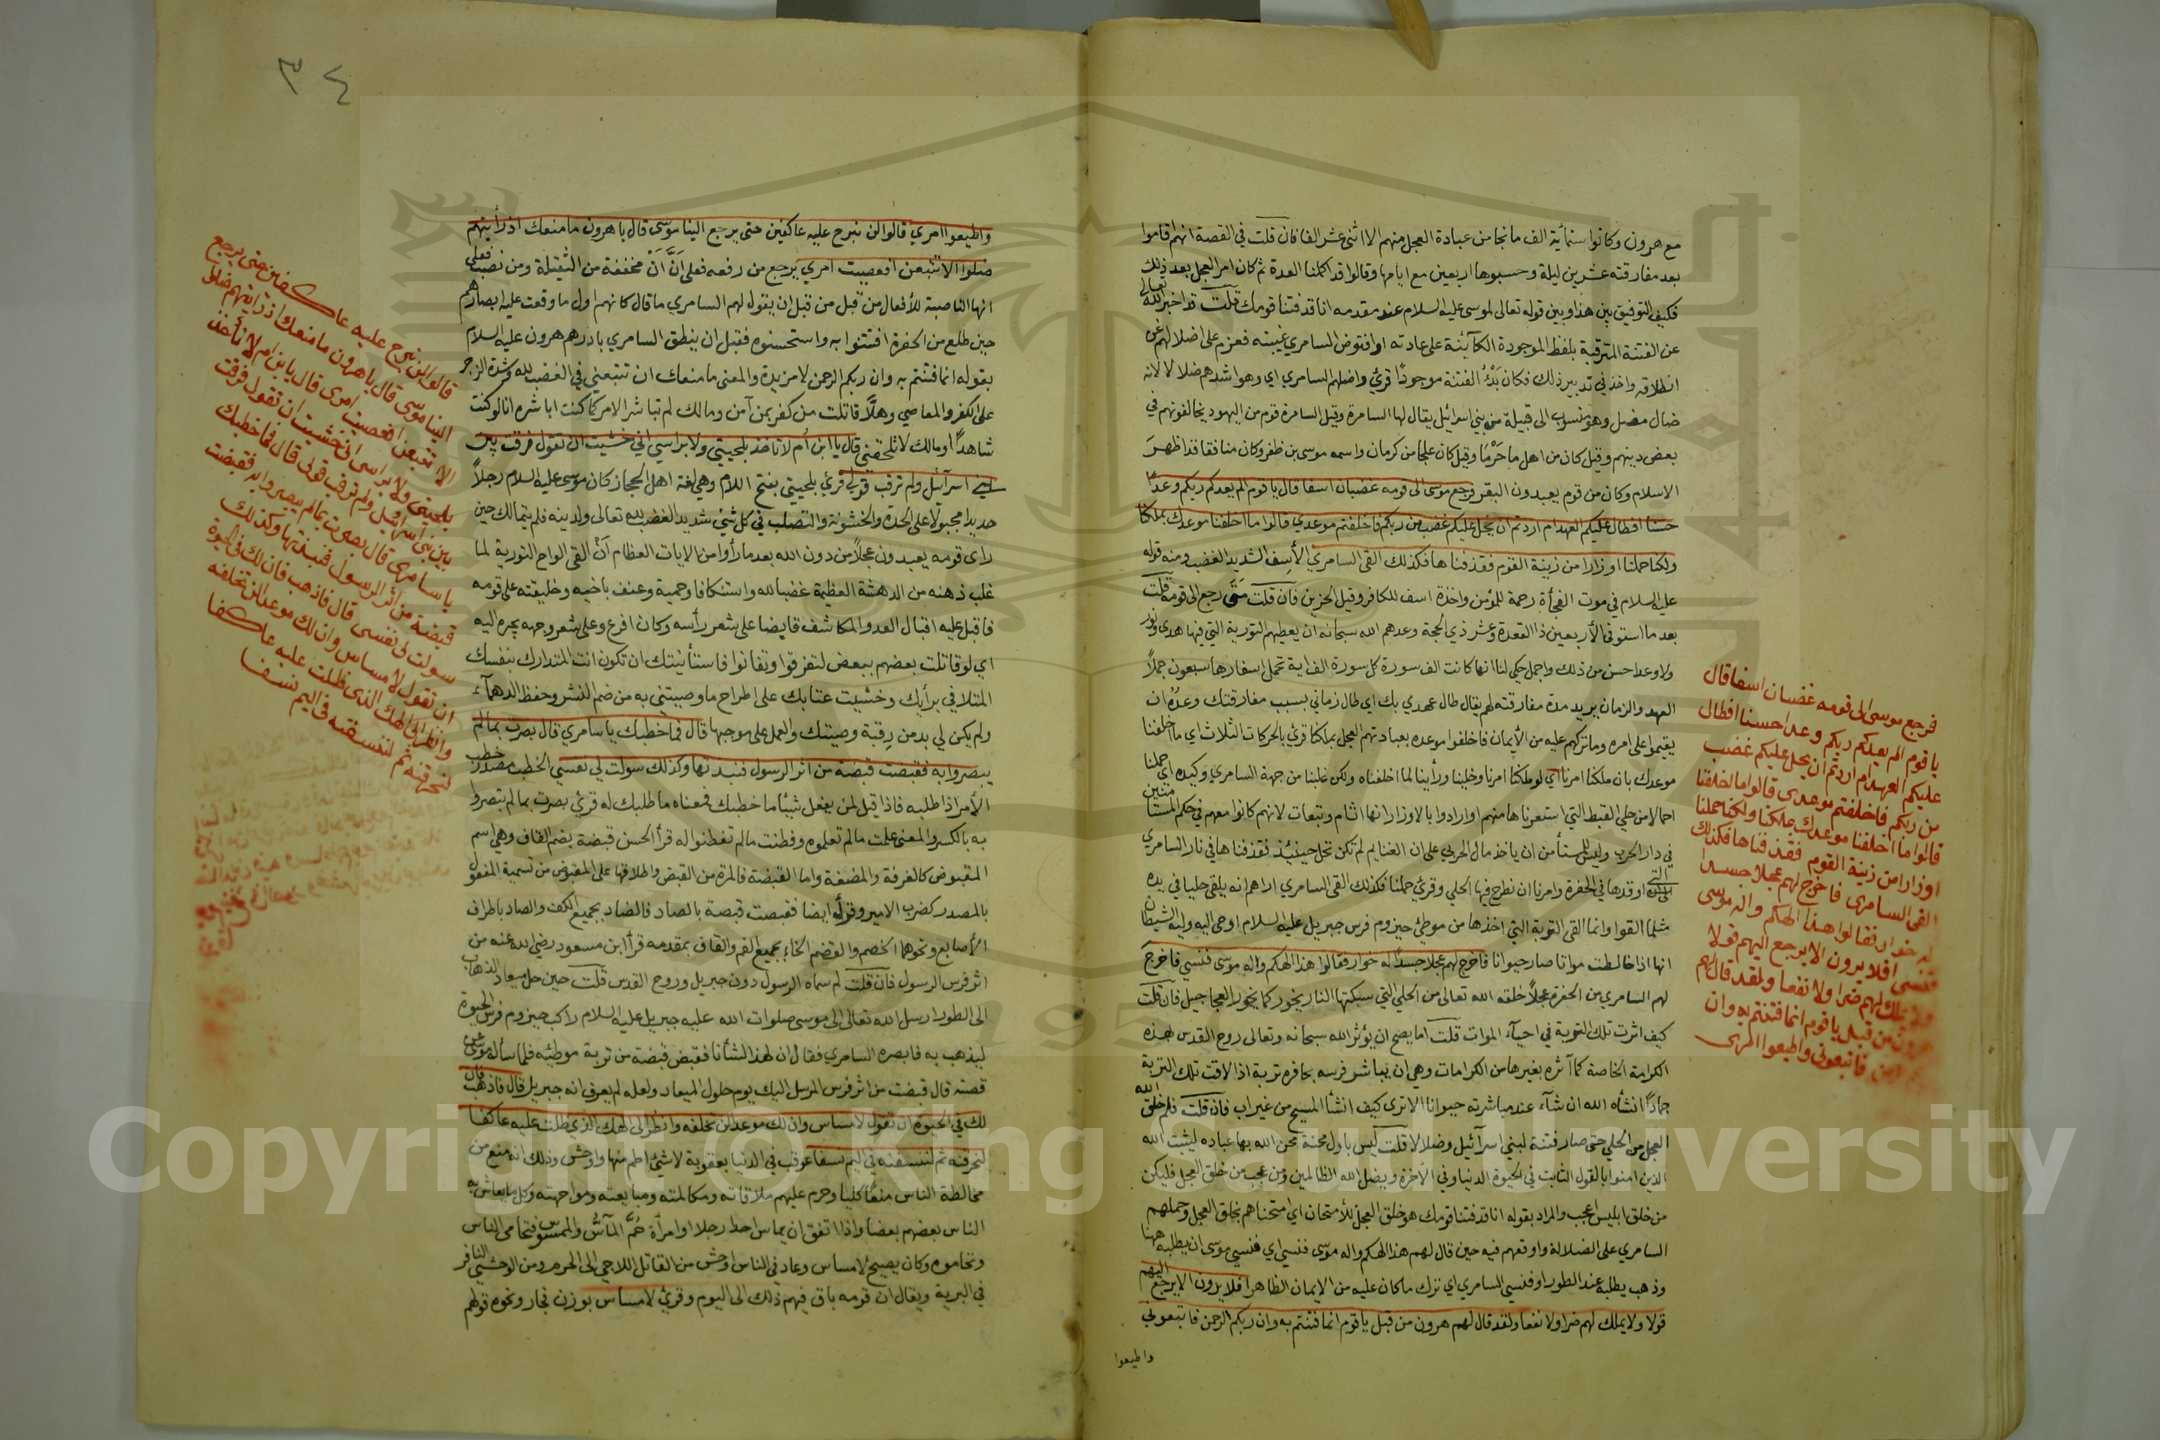 مع هرون وكانوا ستمأية الف مانجا من عبادة العجل منهم الا اثنى عشر الفا فان قلت في القصة انهم قاموا
بعد مفارقته عشرين ليلة وحسبوها اربعين مع ايامها وقالوا قد اكملنا العدة ثم كان امر العجل بعد ذلك
فكيف التوفيق بين هذا وبين قوله تعالى لموسى عليه السلام عند مقدمه انا قد فتنا قومك قلت قد اخبر الله تعالى
عن الفتنة المترقبة بلفظ الموجودة الكآئنة على عادته او افترض السامري غيبته فعزم على اضلالهم غب
انطلاقه واخذ في تدبير ذلك فكان بدْؤ الفتنة موجودًا قرئ واضلهم السامري اي وهو اشدهم ضلالا لانه
ضال مضل وهو منسوب الى قبيلة من بني اسرائيل يقال لها السامرة وقيل السامرة قوم من اليهود يخالفونهم في
بعض دينهم وقيل كان من اهل باجَرْمَا وقيل كان علجا من كرمان واسمه موسى بن ظفر وكان منافقا قد اظهر
الاسلام وكان من قوم يعبدون البقر فرجع موسى الى قومه غضبان اسفا قال يا قوم الم يعدكم ربكم وعدًا
حسنا افطال عليكم العهد ام اردتم ان يحل عليكم غضب من ربكم فاخلفتم موعدي قالوا ما اخلفنا موعدك بملكنا
ولكنا حملنا اوزارا من زينة القوم فقذفناها فكذلك القى السامري الأسِف الشديد الغضب ومنه قوله
عليه السلام في موت الفجأة رحمة للمؤمن واخذة اسف للكافر وقيل الحزين فان قلت مَتَى رجع الى قومه قلت
بعد ما استوفى الأربعين ذا القعدة وعشر ذي الحجة وعدهم الله سبحانه ان يعطيهم التورية التي فيها هدى ونور
ولا وعد احسن من ذلك واجمل حكي لنا انها كانت الف سورة كل سورة الف اية تحمل اسفارها سبعون جملاً
العهد والزمان يريد مدة مفارقته لهم يقال طال عهدي بك اي طال زماني بسبب مفارقتك وعدُوه ان
يقيموا على امره وما تركهم عليه من الأيمان فاخلفوا موعده بعبادتهم العجل بملكنا قرئ بالحركات الثلاث اي ما اخلفنا
موعدك بان ملكنا امرنا اي لو ملكنا امرنا وخلينا ورأينا لما اخلفناه ولكن غلبنا من جهة السامري وكيده اي حملنا
احمالا من حلي القبط التي استعرناها منهم او ارادوا بالاوزار انها اثام وتبعات لانهم كانوا معهم في حكم المستامنين
في دار الحرب وليس للمستأمن ان ياخذ مال الحربي على ان الغنايم لم تكن تحل حينئذ فقذفناها في نار السامري
التي اوقدها في الحفرة وامرنا ان نطرح فيها الحلي وقرئ حملنا فكذلك القى السامري اراهم انه يلقي حليا في يده
مثلما القوا وانما القى التربة التي اخذها من موطئ حيزوم فرس جبريل عليه السلام اوحى اليه وليه الشيطان
انها اذا خالطت مواتا صار حيوانا فاخرج لهم عجلا جسدًا له خوار فقالوا هذا الهكم واله موسى فنسي فاخرج
لهم السامري من الحفرة عجلاً خلقه الله تعالى من الحلي التي سبكتها النار يخور كما يخور العجاجيل فان قلت
كيف اثرت تلك التربة في احيآء الموات قلت اما يصح ان يؤثر الله سبحانه وتعالى روح القدس بهذه
الكرامة الخاصة كما آثره بغيرها من الكرامات وهي ان يباشر فرسه بحافره تربة اذا لاقت تلك التربة
جمادًا انشأه الله ان شآء عند مباشرته حيوانا الا ترى كيف انشأ المسيح من غير اب فان قلت فلم خلق الله
العجل من الحلي حتى صار فتنة لبني اسرآئيل وضلالا قلت ليس باول محنة محن الله بها عباده ليثبت الله
الذين امنوا بالقول الثابت في الحيوة الدنيا وفي الآخرة ويضل الله الظالمين ومن عجب من خلق العجل فليكن
من خلق ابليس اعجب والمراد بقوله انا قد فتنا قومك هو خلق العجل للأمتحان اي امتحناهم بخلق العجل وحملهم
السامري على الضلالة واوقعهم فيه حين قال لهم هذا الهكم واله موسى فنسي اي فنسي موسى ان يطلبه ههنا
وذهب يطلبه عند الطور او فنسي السامري اي ترك ما كان عليه من الايمان الظاهر افلا يرون الا يرجع اليهم
قولا ولا يملك لهم ضرا ولا نفعا ولقد قال لهم هرون من قبل يا قوم انما فتنتم به وان ربكم الرحمن فاتبعوني
واطيعوا
فرجع موسى الى قومه غضبان اسفا قال
يا قوم الم يعدكم ربكم وعدا حسنا افطال
عليكم العهد ام اردتم ان يحل عليكم غضب
من ربكم فاخلفتم موعدى قالوا ما اخلفنا
قالوا ما اخلفنا موعدك بملكنا ولكنا حملنا
اوزارا من زينة القوم فقذفناها فكذلك
القى السامرى فاخرج لهم عجلا جسدا
له خوار فقالوا هذا الهكم واله موسى
فنسى افلا يرون الا يرجع اليهم قولا
ولا يملك لهم ضرا ولا نفعا ولقد قال لهم
هرون من قبل يا قوم انما فتنتم به وان
فاتبعونى واطيعوا امرى
٣٤
واطيعوا امري قالوا لن نبرح عليه عاكفين حتى يرجع الينا موسى قال يا هرون ما منعك اذ رأيتهم
ضلوا الا تتبعن افعصيت امري يرجع من رفعه فعلى اَنَّ اَنْ مخففة من الثقيلة ومن نصب فعلى
انها الناصبة للأفعال من قبل من قبل ان يقول لهم السامري ما قال كانهم اول ما وقعت عليه ابصارهم
حين طلع من الحفرة افتتنوا به واستحسنوه فقبل ان ينطق السامري بادرهم هرون عليه السلام
بقوله انما فتنتم به وان ربكم الرحمن لا مزيدة والمعنى ما منعك ان تتبعني في الغضب لله وشدة الزجر
على الكفر والمعاصي وهلّا قاتلت من كفر بمن آمن وما لك لم تباشر الامر كما كنت اباشره انا لو كنت
شاهدًا او مالك لا تلحقني قال يا ابن اُم لا تاخذ بلحيتي ولا براسي اني خشيت ان تقول فرقت بين
بني اسرآئيل ولم ترقب قولي قرئ بلحيتي بفتح اللام وهي لغة اهل الحجاز كان موسى عليه السلام رجلاً
حديدا مجبولا على الحدة والخشونة والتصلب في كل شئ شديد الغضب لله تعالى ولدينه فلم يتمالك حين
راى قومه يعبدون عجلاً من دون الله بعد ما رأوا من الايات العظام اَنْ القى الواح التورية لما
غلب ذهنه من الدهشة العظيمة غضبا لله واستنكافا وحمية وعنف باخيه وخليفته على قومه
فاقبل عليه اقبال العدو المكاشف قابضا على شعر رأسه وكان افرع وعلى شعر وجهه يجره اليه
اي لو قاتلت بعضهم ببعض لتفرقوا وتفانوا فاستأنيتك ان تكون انت المتدارك بنفسك
المتلافي برأيك وخشيت عتابك على اطراح ما وصيتني به من ضم النشر وحفظ الدهمآء
ولم يكن لي بد من رقبة وصيتك والعمل على موجبها قال فما خطبك يا سامري قال بصرت بما لم
يبصروا به فقبضت قبضة من اثر الرسول فنبذتها وكذلك سولت لي نفسي الخطب مصدر خطب
الأمر اذا طلبه فاذا قيل لمن يفعل شيئا ما خطبك فمعناه ما طلبك له قرئ بصرت بما لم يبصروا
به بالكسر والمعنى علمت ما لم تعلموه وفطنت ما لم تفطنوا له قرأ الحسن قبضة بضم القاف وهي اسم
المقبوض كالغرفة والمضغة واما القبضة فالمرة من القبض واطلاقها على المقبوض من تسمية المفعول
بالمصدر كضرب الامير وقرئ ايضا فقبصت قبصة بالصاد فالضاد بجميع الكف والصاد باطراف
الأصابع ونحوهما الخضم والقضم الخاء بجميع الفم والقاف بمقدمه قرأ ابن مسعود رضي الله عنه من
اثر فرس الرسول فان قلت لم سماه الرسول دون جبريل وروح القدس قلت حين حل ميعاد الذهاب
الى الطور ارسل الله تعالى الى موسى صلوات الله عليه جبريل عليه السلام راكب حيزوم فرس الحيوة
ليذهب به فابصره السامري فقال ان لهذا لشأنا فقبض قبضة من تربة موطئه فلما سأله موسى عن
قصته قال قبضت من اثر فرس المرسل اليك يوم حلول الميعاد ولعله لم يعرف انه جبريل قال فاذهب فان
لك في الحيوة ان تقول لا مساس وان لك موعدا لن تخلفه وانظر الى الهك الذي ظلت عليه عاكفا
لنحرقنه ثم لننسفنه في اليم نسفا عوقب في الدنيا بعقوبة لا شئ اطم منها واوحش وذلك انه منع من
مخالطة الناس منعًا كليا وحرم عليهم ملاقاته ومكالمته ومبايعته ومواجهته وكل ما يعايش به
الناس بعضهم بعضا واذا اتفق ان يماس احدا رجلا او امرأة حُمّ المآسّ والممسوس فتحامى الناس
وتحاموه وكان يصيح لا مساس وعاد في الناس اوحش من القاتل اللاجي الى الحرم ومن الوحشي النافر
في البرية ويقال ان قومه باق فيهم ذلك الى اليوم وقرئ لا مساس بوزن فجار ونحوه قولهم
قالوا لن نبرح عليه عاكفين حتى يرجع
الينا موسى قال يا هرون ما منعك اذ رايتهم ضلوا
الا تتبعن افعصيت امرى قال يا ابن ام لا تأخذ
بلحيتى ولا براسى انى خشيت ان تقول فرقت
بين بنى اسرائيل ولم ترقب قولى قال فما خطبك
يا سامرى قال بصرت بما لم يبصروا به فقبضت
قبضة من اثر الرسول فنبذتها وكذلك
سولت لى نفسى قال فاذهب فان لك فى الحيوة
ان تقول لا مساس وان لك موعدا لن تخلفه
وانظر الى الهك الذى ظلت عليه عاكفا
لنحرقنه ثم لننسفنه فى اليم نسفا
Copyright © King Saud University